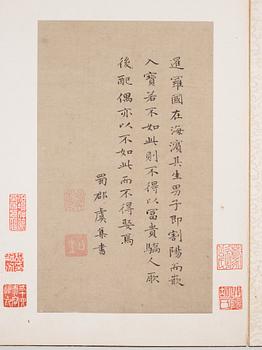 暹羅國在海濱其生男子即割陽而嵌
入寶若不如此則不得以冨貴驕人厭
後配偶亦以不如此而不得娶焉
蜀郡虞集書